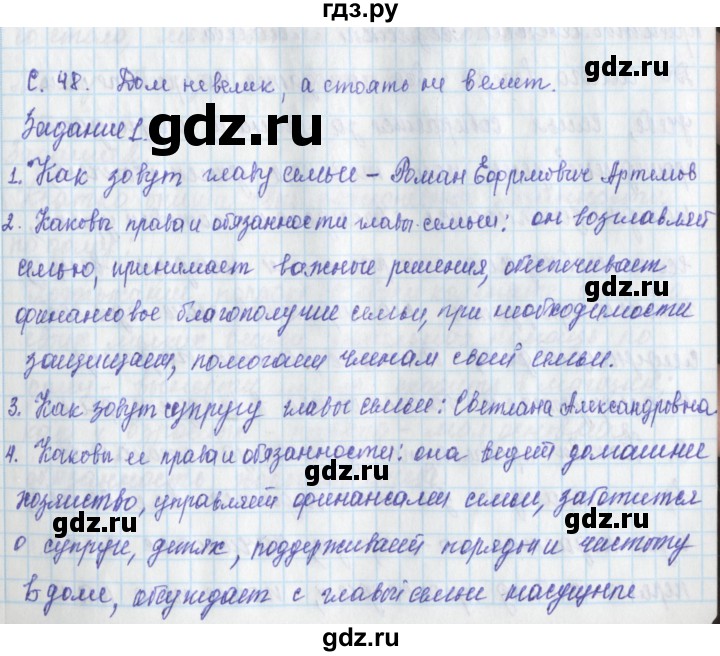 гдз.ру
С. 48. Дом не велик, а стоять не велит.
Задание 1.
1. Как зовут главу семьи – Роман Ефримович Артемов
2. Каковы права и обязанности главы семьи: он возглавляет
семью, принимает важные решения, обеспечивает
финансовое благополучие семьи, при необходимости
защищает, помогает членам своей семьи.
3. Как зовут супругу главы семьи: Светлана Александровна
4. Каковы ее права и обязанности: она ведет домашнее
хозяйство, управляет финансами семьи, заботится
о супруге, детях, поддерживает порядок и чистоту
в доме, обсуждает с главой семьи насущные
gdz.ru
gdz.ru
gdz.ru
gdz.ru
gdz.ru
gdz.ru
gdz.ru
gdz.ru
gdz.ru